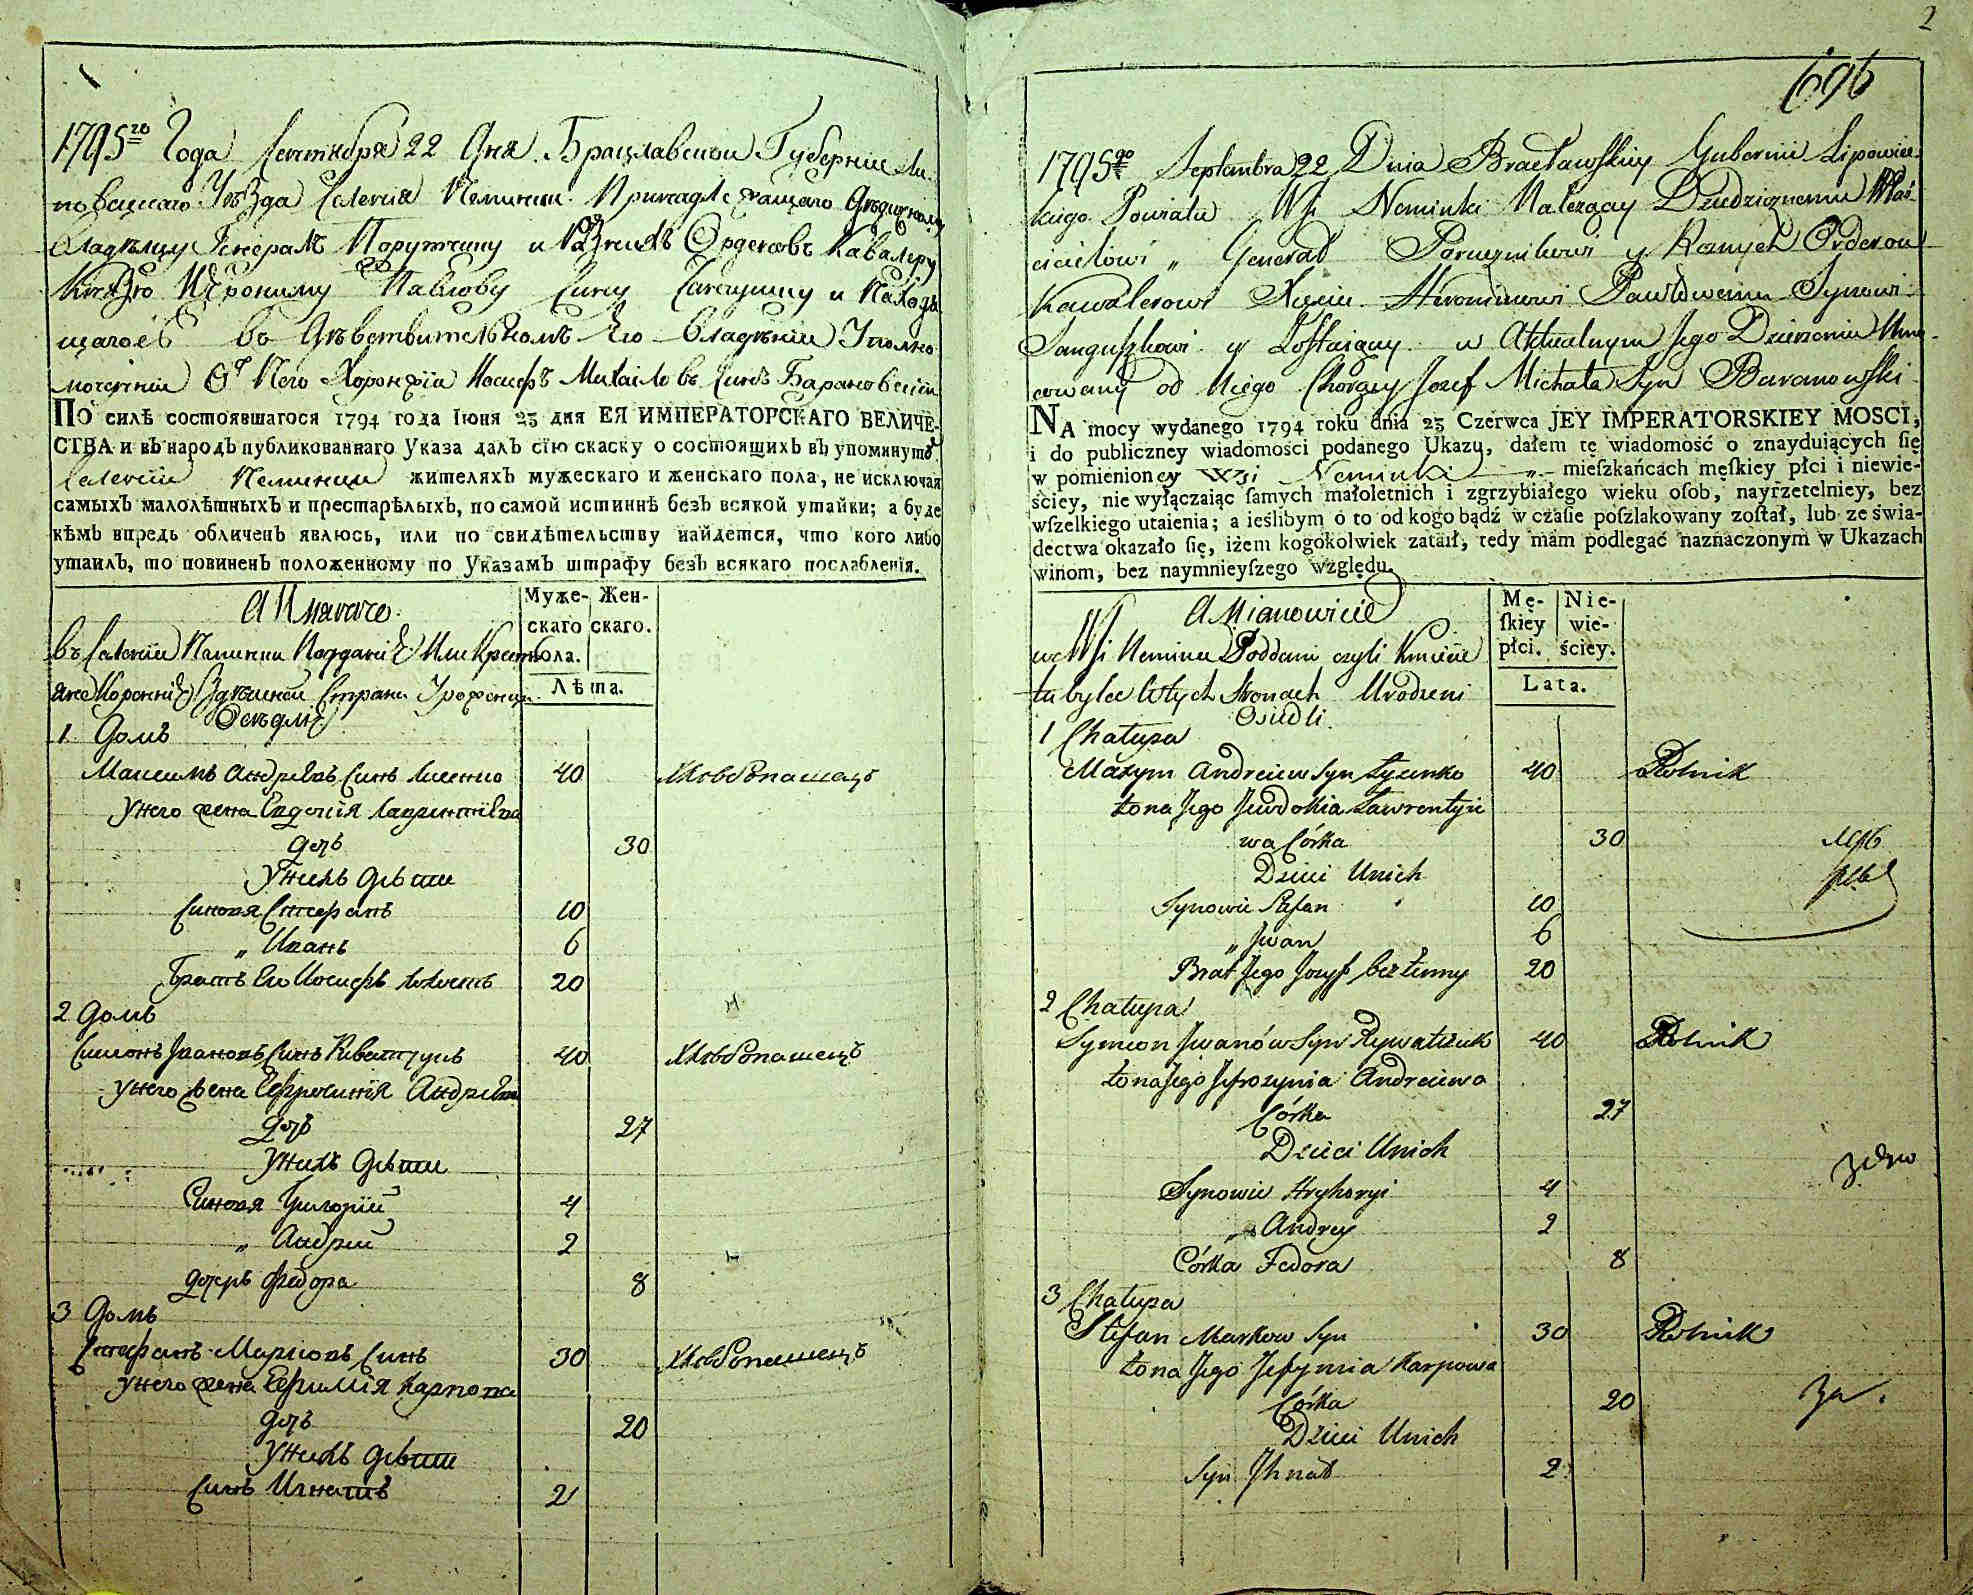 1795го Года Сентября 22 Дня Брацлавской Губернїи Ли-
повецкаго Уѣзда Селенїя Неминки Принадлежащаго Дѣдичному
Владѣлцу Генералъ Порутчику и Разныхъ Орденовъ Кавалеру
Князю Иерониму Павлову Сину Сангушку и Находя
щагось въ Дѣйствительномъ Его Владѣнїи Уполно
моченнїй Отъ Него Хоронжїй Иосифъ Михайловъ Синъ Барановскїй
ПО силѣ состоявшагося 1794 года Іюня 23 дня ЕЯ ИМПЕРАТОРСКАГО ВЕЛИЧЕ-
СТВА и въ народъ публикованнаго Указа далъ сїю скаску о состоящихъ въ упомянуто
Селенїи Неминки жителяхъ мужескаго и женскаго пола, не исключая
самыхъ малолѣтныхъ и престарѣлыхъ, по самой истиннѣ безъ всякой утайки; а буде
кѣмъ впредь обличенъ явлюсь, или по свидѣтельству найдется, что кого либо
утаилъ, то повиненъ положенному по Указамъ штрафу безъ всякаго послабленїя.
А Имянно
Муже-скаго пола. Жен-скаго.
Лѣта.
въ Селенїи Неминки Подданїе Или Крестя
яне Здѣшней Страни Урожонци
Осѣдлїе
1 Домъ
Максимъ Андрѣевъ Синъ Лисенко 40 Хлѣбопашецъ
У него жена Евдокїя Лаврентїева
дочъ 30
У нихъ Дѣти
Синовя Стефанъ 10
„ Иванъ 6
Братъ Его Иосифъ Холостъ 20
2 Домъ
Симонъ Ивановъ Синъ Риватчукъ 40 Хлѣбопашецъ
У него жена Ефросинїя Андрѣева
дочъ 27
У нихъ Дѣти
Синовя Григорїй 4
„ Андрїй 2
дочеръ Федора 8
3 Домъ
Стефанъ Марковъ Синъ 30 Хлѣбопашецъ
У него жена Ефимїя Карпова
дочъ 20
У нихъ Дѣти
Синъ Игнатъ 2
2
696
1795go Septembra 22 Dnia Bracławskiey Gubernii Lipowiec-
kiego Powiatu Wsi Neminki Należącey Dziedzicznemu Właś-
cicielowi „ Generał Porucznikowi y Roznych Orderow
Kawalerowi Xięciu Hieronimowi Pawłowemu Synowi
Sanguszkowi y Zostaiącey w Aktualnym Jego Dzierżeniu Umo-
cowany od Niego Chorąży Jozef Michała Syn Baranowski
NA mocy wydanego 1794 roku dnia 23 Czerwca JEY IMPERATORSKIEY MOSCI,
i do publiczney wiadomości podanego Ukazu, dałem tę wiadomość o znayduiących ſię
w pomienioney Wsi Neminki „ mieſzkańcach męſkiey płci i niewie-
ściey, nie wyłączaiąc ſamych małoletnich i zgrzybiałego wieku oſob, nayrzetelniey, bez
wſzelkiego utaienia; a ieślibym o to od kogo bądź w czaſie poſzlakowany zoſtał, lub ze świa-
dectwa okazało ſię, iżem kogokolwiek zataił, tedy mam podlegać naznaczonym w Ukazach
winom, bez naymnieyſzego względu.
A Mianowicie
Mę-ſkiey płci. Nie-wie-ściey.
Lata.
we Wsi Nemince Poddani czyli Kmiecie
tubylce w tych Stronach Urodzeni
Osiedli
1 Chałupa
Maxym Andreiew Syn Łysenko 40 Rolnik
Żona Jego Jewdokia Ławrentyie
wa Córka 30
Dzieci U nich
Synowie Stefan 10
„ Iwan 6
Brat Jego Jozyf bezżenny 20
2 Chałupa
Symeon Iwanów Syn Rywatczuk 40 Rolnik
Żona Jego Jefrozynia Andreiewa
Córka 27
Dzieci U nich
Synowie Hryhoryi 4
„ Andrey 2
Córka Fedora 8
3 Chałupa
Stefan Markow Syn 30 Rolnik
Żona Jego Jefymia Karpowa
Córka 20
Dzieci U nich
Syn Ihnat 2